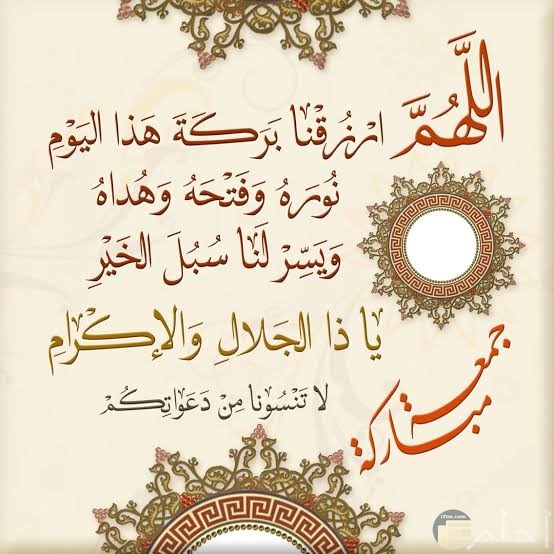 اللَّهُمَّ ارْزُقْنَا بَرَكَةَ هَذَا اليَوْمِ
نُورَهُ وَفَتْحَهُ وَهُدَاهُ
وَيَسِّرْ لَنَا سُبُلَ الخَيْرِ
يَا ذَا الجَلَالِ وَالإِكْرَامِ
لَا تَنْسُونَا مِنْ دَعَوَاتِكُمْ
جمعة
مباركة